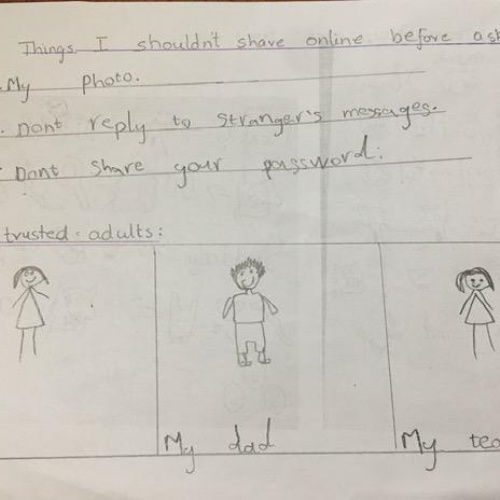 Things I shouldn't share online before
My photo.
. Dont reply to stranger's messages.
Dont share your password.
trusted adults:
My dad
My